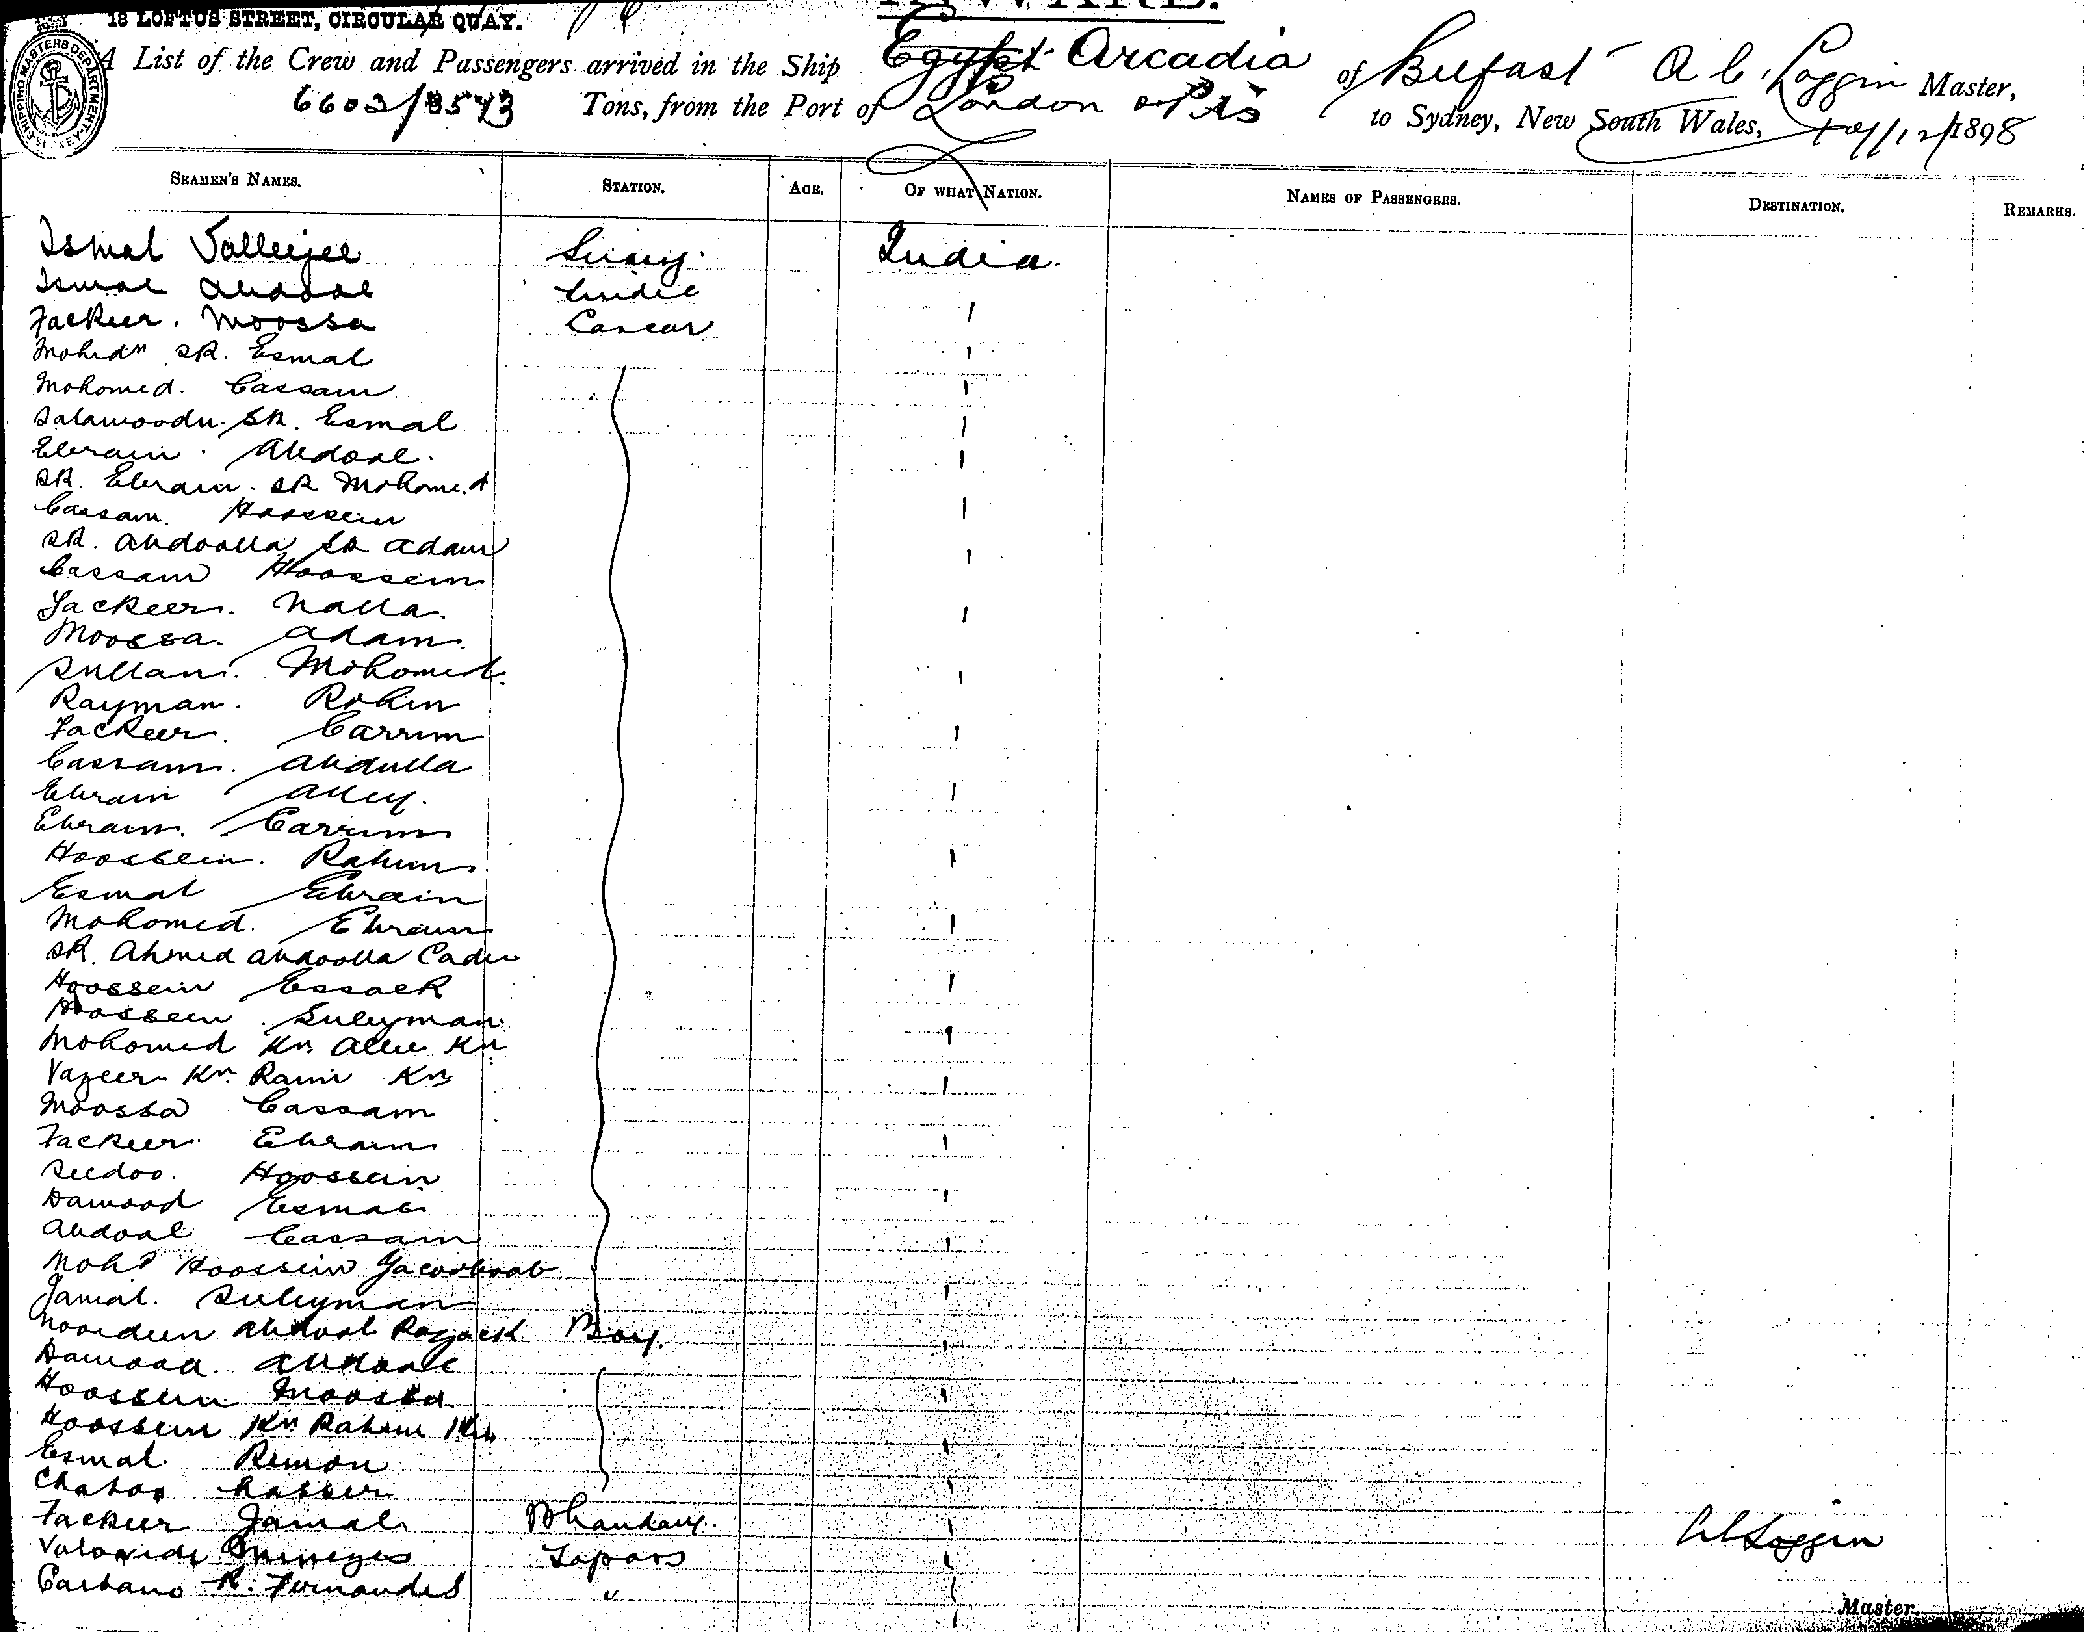 18 LOFTUS STREET, CIRCULAR QUAY.
A List of the Crew and Passengers arrived in the Ship Egypt Arcadia of Belfast A C Loggin Master,
6603/3573 Tons, from the Port of London & Pts to Sydney, New South Wales, /12/1898
SEAMEN'S NAMES. STATION. AGE. OF WHAT NATION. NAMES OF PASSENGERS. DESTINATION. REMARKS.
Ismal Valleyjee India
Ismal Abdool
Fackeer. Moossa Cascar
Mohidn SK. Esmal
Mohomed. Cassam
Salamoodn. SK. Esmal
Ebraim. Abdool.
SK. Ebraim. SK Mohomed
Cassam. Hoossein
SK. Abdoolla SK Adam
Cassam Hoossein
Fackeer. Nalla.
Moossa. Adam.
Sultan. Mohomed.
Rayman. Rohim
Fackeer. Carrim
Cassam. Abdulla
Ebraim Alley.
Ebraim. Carrim
Hoossein. Rahim.
Esmal Ebraim
Mohomed. Ebraim
SK. Ahmed Abdoolla Cader
Hoossein Essack
Hoossein Suleyman
Mohomed Kn Allie Kn
Vazeer Kn. Kn
Moossa Cassam
Fackeer Ebraim
Seedoo. Hoossein
Dawood Esmal
Abdool Cassam
Mohd Hoossein
Jamal. Suleyman
Noordeen Abdool Boy.
Dawood. Abdool
Hoossein Moossa
Hoossein Kn Rahim Kn
Esmal Remon
Fackeer Jamal. Bhandary.
Topass
R. Fernandes "
A C Loggin
Master.